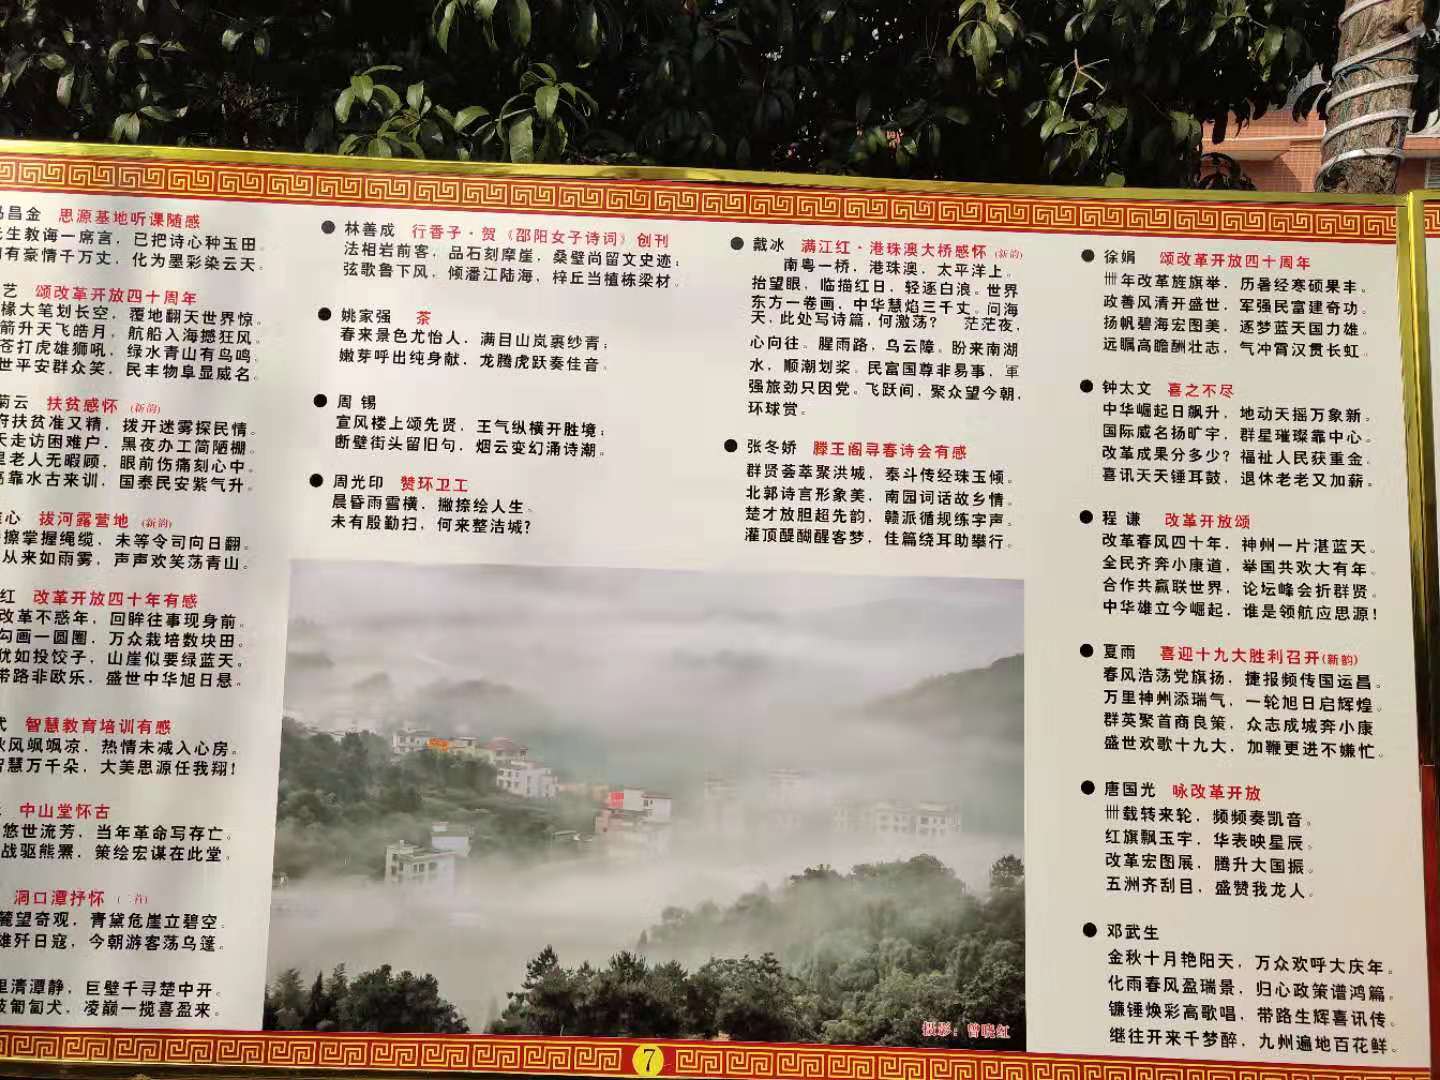 昌金 思源基地听课随感
先生教诲一席言，已把诗心种玉田。
有豪情千万丈，化为墨彩染云天。
艺 颂改革开放四十周年
椽大笔划长空，覆地翻天世界惊。
箭升天飞皓月，航船入海撼狂风。
苍打虎雄狮吼，绿水青山有鸟鸣。
世平安群众笑，民丰物阜显威名。
菊云 扶贫感怀 (新韵)
府扶贫准又精，拨开迷雾探民情。
天走访困难户，黑夜办工简陋棚。
里老人无暇顾，眼前伤痛刻心中。
高靠水古来训，国泰民安紫气升。
心 拔河露营地 (新韵)
擦掌握绳缆，未等令司向日翻。
从来如雨雾，声声欢笑荡青山。
红 改革开放四十年有感
改革不惑年，回眸往事现身前。
勾画一圆圈，万众栽培数块田。
犹如投饺子，山崖似要绿蓝天。
带路非欧乐，盛世中华旭日悬。
弋 智慧教育培训有感
秋风飒飒凉，热情未减入心房。
智慧万千朵，大美思源任我翔！
中山堂怀古
悠世流芳，当年革命写存亡。
战驱熊罴，策绘宏谋在此堂。
洞口潭抒怀 (二首)
麓望奇观，青黛危崖立碧空。
雄歼日寇，今朝游客荡乌篷。
里清潭静，巨壁千寻楚中开。
技匍匐犬，凌巅一揽喜盈来。
● 林善成 行香子·贺《邵阳女子诗词》创刊
法相岩前客，品石刻摩崖，桑壁尚留文史迹；
弦歌鲁下风，倾潘江陆海，梓丘当植栋梁材。
● 姚家强 茶
春来景色尤怡人，满目山岚裹纱青；
嫩芽呼出纯身献，龙腾虎跃奏佳音。
● 周 锡
宣风楼上颂先贤，王气纵横开胜境；
断壁街头留旧句，烟云变幻涌诗潮。
● 周光印 赞环卫工
晨昏雨雪横，撇捺绘人生。
未有殷勤扫，何来整洁城？
● 戴冰 满江红·港珠澳大桥感怀 (新韵)
南粤一桥，港珠澳，太平洋上。
抬望眼，临描红日，轻逐白浪。世界
东方一卷画，中华慧焰三千丈。问海
天，此处写诗篇，何激荡？ 茫茫夜，
心向往。腥雨路，乌云障。盼来南湖
水，顺潮划桨。民富国尊非易事，军
强旅劲只因党。飞跃间，聚众望今朝，
环球赏。
● 张冬娇 滕王阁寻春诗会有感
群贤荟萃聚洪城，泰斗传经珠玉倾。
北郭诗言形象美，南园词话故乡情。
楚才放胆超先韵，赣派循规练字声。
灌顶醍醐醒客梦，佳篇绕耳助攀行。
● 徐娟 颂改革开放四十周年
卌年改革旌旗举，历暑经寒硕果丰。
政善风清开盛世，军强民富建奇功。
扬帆碧海宏图美，逐梦蓝天国力雄。
远瞩高瞻酬壮志，气冲霄汉贯长虹。
● 钟太文 喜之不尽
中华崛起日飙升，地动天摇万象新。
国际威名扬旷宇，群星璀璨靠中心。
改革成果分多少？福祉人民获重金。
喜讯天天锤耳鼓，退休老老又加薪。
● 程 谦 改革开放颂
改革春风四十年，神州一片湛蓝天。
全民齐奔小康道，举国共欢大有年。
合作共赢联世界，论坛峰会折群贤。
中华雄立今崛起，谁是领航应思源！
● 夏雨 喜迎十九大胜利召开(新韵)
春风浩荡党旗扬，捷报频传国运昌。
万里神州添瑞气，一轮旭日启辉煌。
群英聚首商良策，众志成城奔小康
盛世欢歌十九大，加鞭更进不嫌忙。
● 唐国光 咏改革开放
卌载转来轮，频频奏凯音。
红旗飘玉宇，华表映星辰。
改革宏图展，腾升大国振。
五洲齐刮目，盛赞我龙人。
● 邓武生
金秋十月艳阳天，万众欢呼大庆年。
化雨春风盈瑞景，归心政策谱鸿篇。
镰锤焕彩高歌唱，带路生辉喜讯传。
继往开来千梦醉，九州遍地百花鲜。
摄影：曾晓红
7